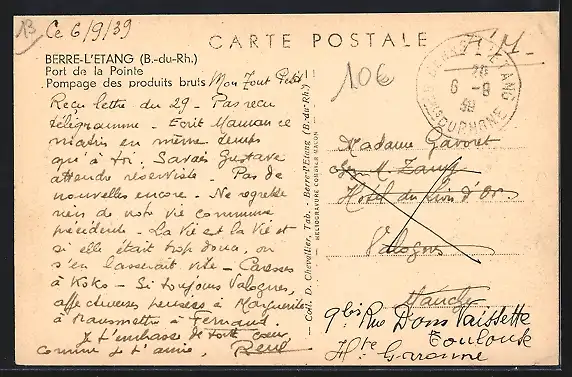 13
Ce 6/9/39
CARTE POSTALE
BERRE-L'ETANG (B.-du-Rh.)
Port de la Pointe
Pompage des produits bruts
Mon Tout Petit
Reçu lettre du 29 - Pas reçu
télégramme. Ecrit Maman ce
matin en même temps
qu'à toi. Savais Gustave
attendre réserviste. Pas de
nouvelles encore. Ne regrette
rien de notre vie commune
précédente. La Vie est la Vie et
si elle était trop douce, on
s'en lasserait vite - Caresses
à Koko - Si toujours Valognes,
affectueuses pensées à Marguerite
à transmettre à Fernand.
Je t'embrasse de tout cœur
comme je t'aime, René
Coll. D. Chevallier, Tab. - Berre-l'Etang (B.-du-Rh.)
HELIOGRAVURE COMBIER MACON
10€
F.M.
BERRE L'ETANG
20
6 -9
39
Bches DU RHONE
Madame Gavoret
Hotel du Lion d'Or
Valognes
Manche
9bis Rue Dom Vaissette
Toulouse
Hte Garonne